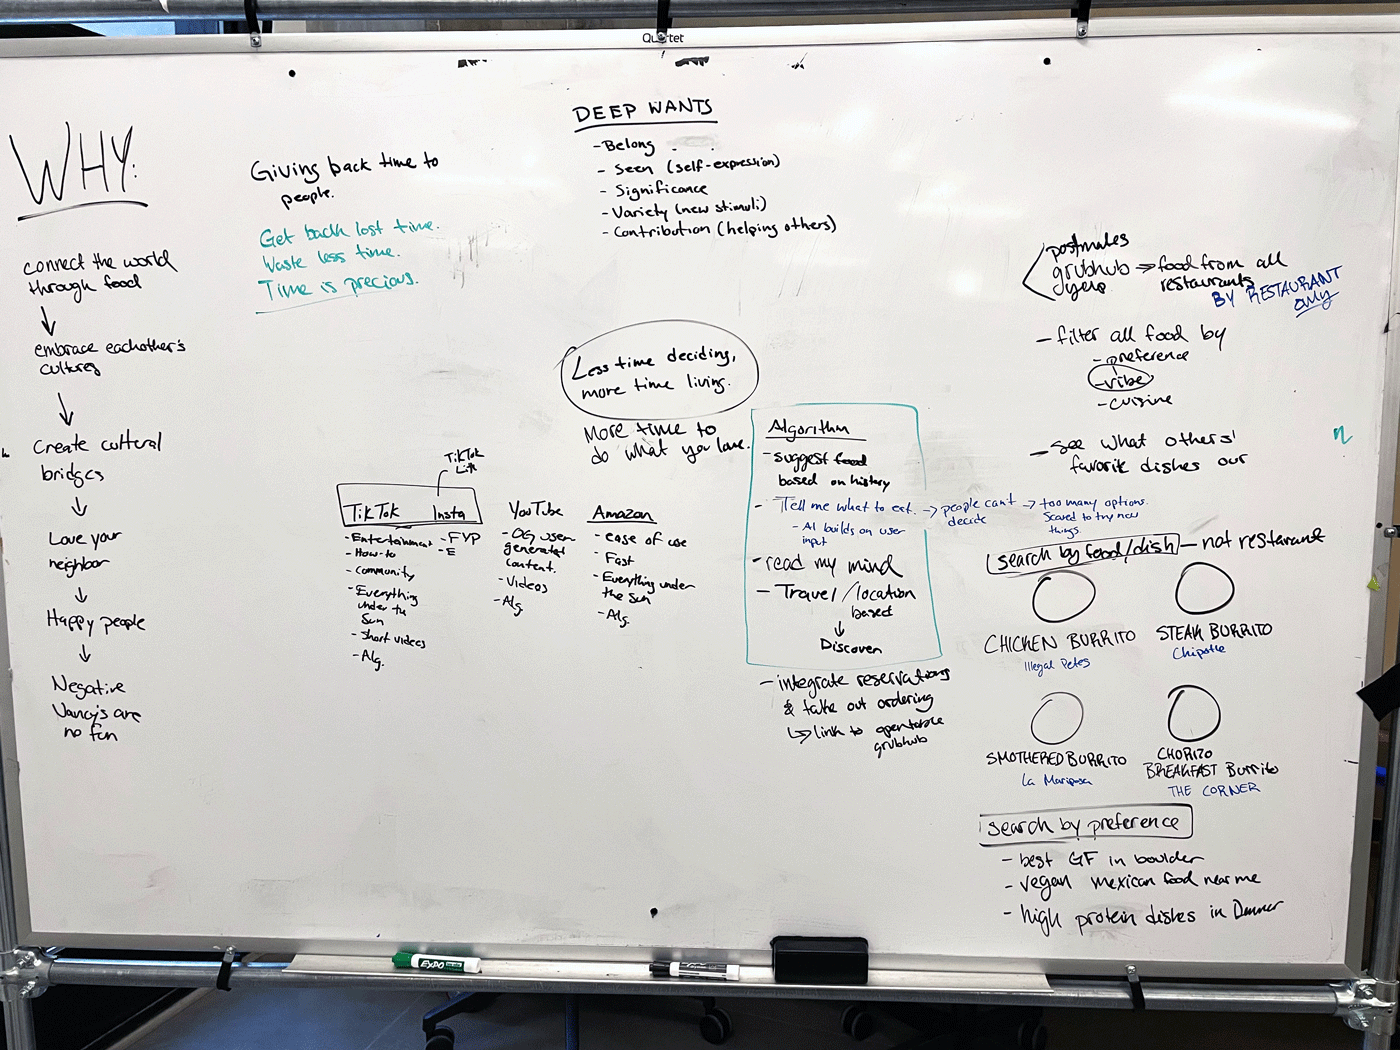 Quartet
WHY:
connect the world
through food
embrace eachother's
cultures
Create cultural
bridges
Love your
neighbor
Happy people
Negative
Nancy's are
no fun
Giving back time to
people.
Get back lost time.
Waste less time.
Time is precious.
DEEP WANTS
- Belong
- Seen (self-expression)
- Significance
- Variety (new stimuli)
- Contribution (helping others)
Less time deciding,
more time living.
More time to
do what you love.
TikTok
Lite
TikTok Insta
- Entertainment
- How-to
- Community
- Everything
under the
Sun
- Short videos
- Alg.
- FYP
- E
YouTube
- OG user
generated
content.
- Videos
- Alg.
Amazon
- ease of use
- Fast
- Everything under
the Sun
- Alg.
Algorithm
- suggest food
based on history
- Tell me what to eat. → people can't → too many options.
decide
Scared to try new
things.
- AI builds on user
input
- read my mind
- Travel/location
based
↓
Discover
- integrate reservations
& take out ordering
↳ link to opentable
grubhub
postmates
grubhub → food from all
yelp
restaurants
BY RESTAURANT
only
- filter all food by
- preference
- vibe
- cuisine
- see what others'
favorite dishes our
search by food/dish - not restaraut
CHICKEN BURRITO
Illegal Petes
STEAK BURRITO
Chipotle
SMOTHERED BURRITO
La Mariposa
CHORIZO
BREAKFAST Burrito
THE CORNER
search by preference
- best GF in boulder
- vegan mexican food near me
- high protein dishes in Denver
EXPO